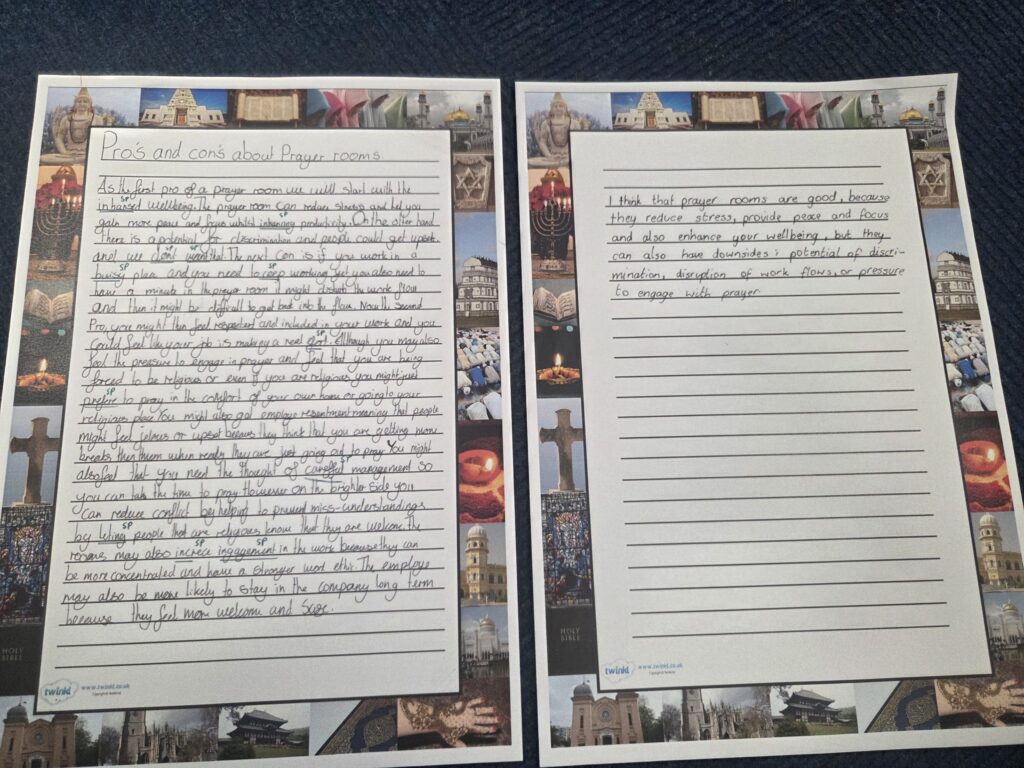 Pro's and con's about Prayer rooms
As the first pro of a prayer room we will start with the
sp
wellbeing. The prayer room can reduce stress and help you
gain more peace and focus whilst productivity. On the other hand
sp
There is a potential for discrimination and people could get upset
and we don't want that. The next con is if you work in a
sp
sp
busisy place and you need to ceep working yet you also need to
have a minute in the prayer room it might disturb the work flow
and then it might be difficult to get back into the flow. Now the second
Pro, you might then feel and included in your work and you
sp
could feel like your job is making a need. Although you may also
feel the pressure to engage in prayer and feel that you are being
forced to be religious or even if you are religious you might just
sp
prefire to pray in the comfort of your own home or going to your
religious place. You might also get employe resentment meaning that people
might feel or upset because they think that you are getting more
breaks then them when really they are just going out to pray. You might
sp
also feel that you need the thought of management so
you can take the time to pray. However on the brighter side you
can reduce conflict by helping to prevent miss-understandings
sp
by leting people that are religious know that they are welcome. The
sp
sp
rooms may also increce ingagement in the work because they can
be more concentrated and have a stronger work ethic. The employe
may also be more likely to stay in the company long term
because they feel more welcome and
twinkl
www.twinkl.co.uk
HOLY
BIBLE
I think that prayer rooms are good, because
they reduce stress, provide peace and focus
and also enhance your wellbeing, but they
can also have downsides: potential of discri-
mination, disruption of work flows, or pressure
to engage with prayer.
HOLY
BIBLE
twinkl
www.twinkl.co.uk